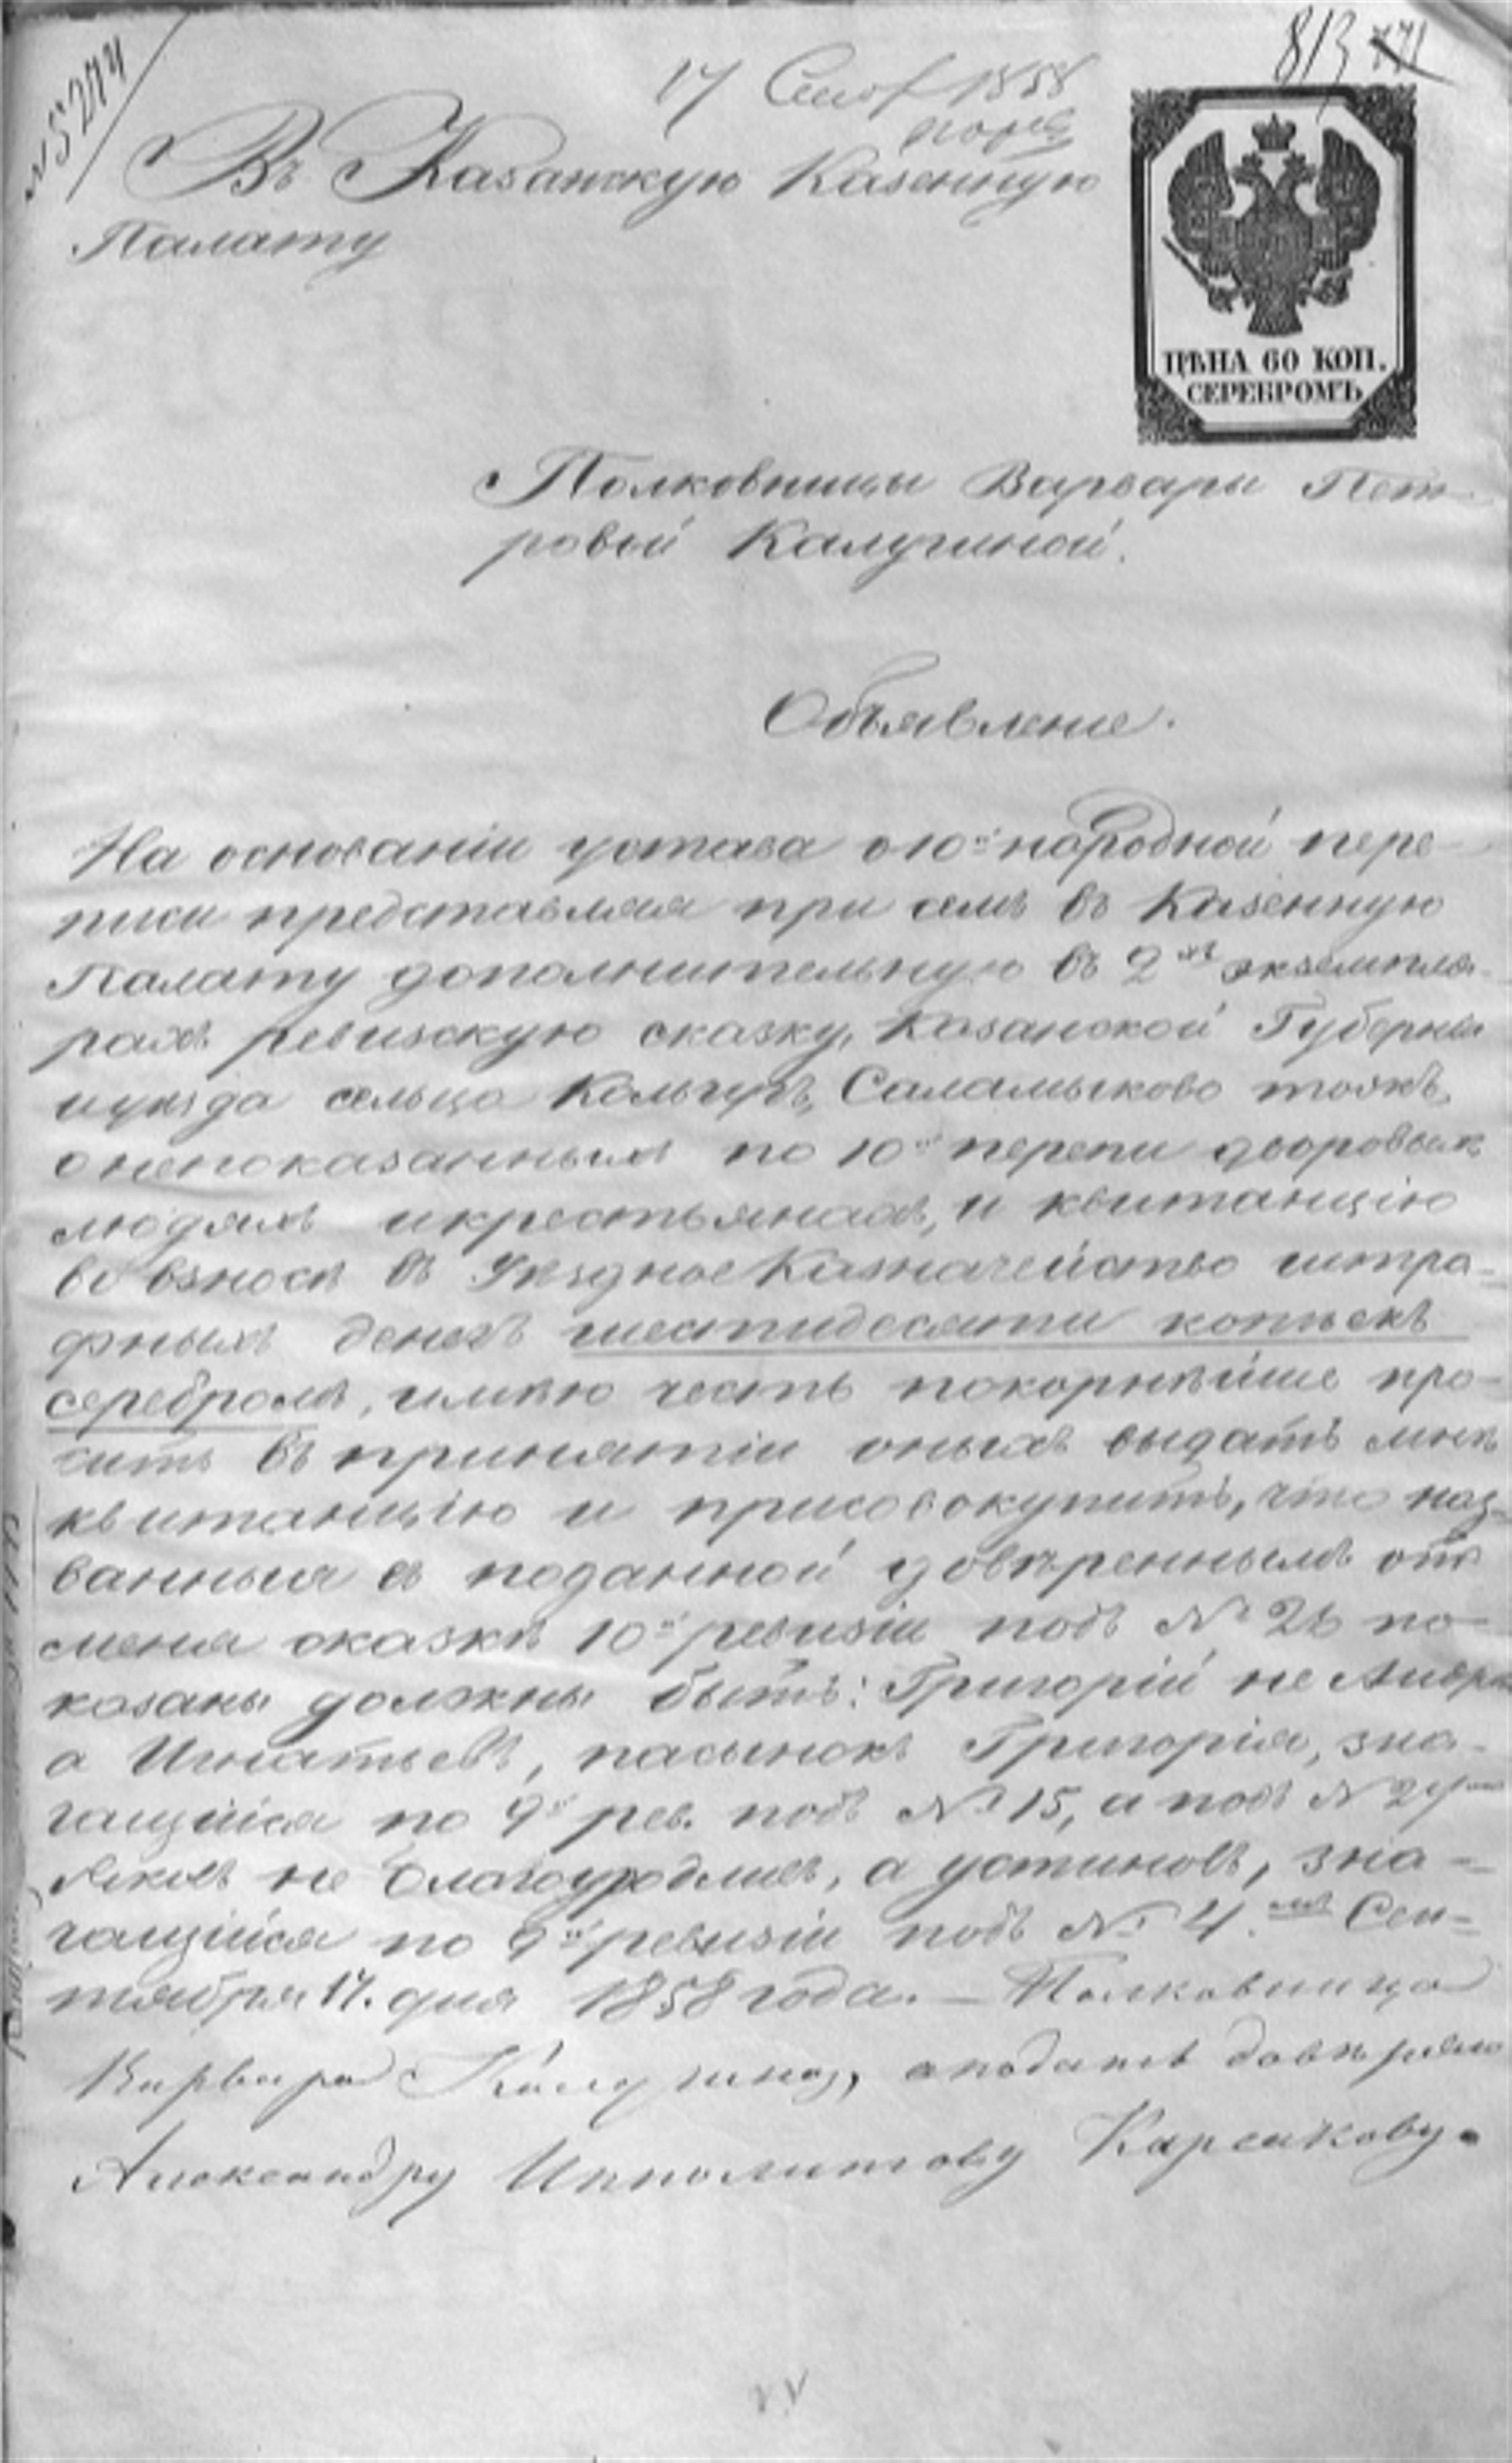 813 771
№ 5274
17 Сент 1858
Въ Казанскую Казенную
Палату
ЦѢНА 60 КОП.
СЕРЕБРОМЪ
Полковницы Варвары Пет-
ровой Калугиной.
Объявленіе.
На основаніи устава о 10й народной пере-
писи представляя при семъ въ Казенную
Палату дополнительную въ 2хъ экземпля-
рахъ ревизскую сказку, Казанской Губерніи
и уѣзда сельца Кольчугъ, Саламыково тожъ,
о непоказанныхъ по 10й перепи дворовыхъ
людяхъ и крестьянахъ, и квитанцію
во взносѣ въ Уѣздное Казначейство штра-
фныхъ денегъ шестидесяти копѣекъ
серебромъ, имѣю честь покорнѣйше про-
сить въ принятіи оныхъ выдать мнѣ
квитанцію и присовокупить, что наз-
ванныя въ поданной довѣреннымъ отъ
меня сказкѣ 10й ревизіи подъ № 26 по-
казаны должны быть: Григорій не Андре
а Игнатьевъ, пасынокъ Григорія, зна-
чащійся по 9й рев. подъ № 15, а подъ №
Яковъ не а Устиновъ, зна-
чащійся по 9й ревизіи подъ № 4. Сен-
тября 17. дня 1858 года. — Полковница
Варвара Калугина, а подать довѣряю
Александру Ипполитову Карсакову.